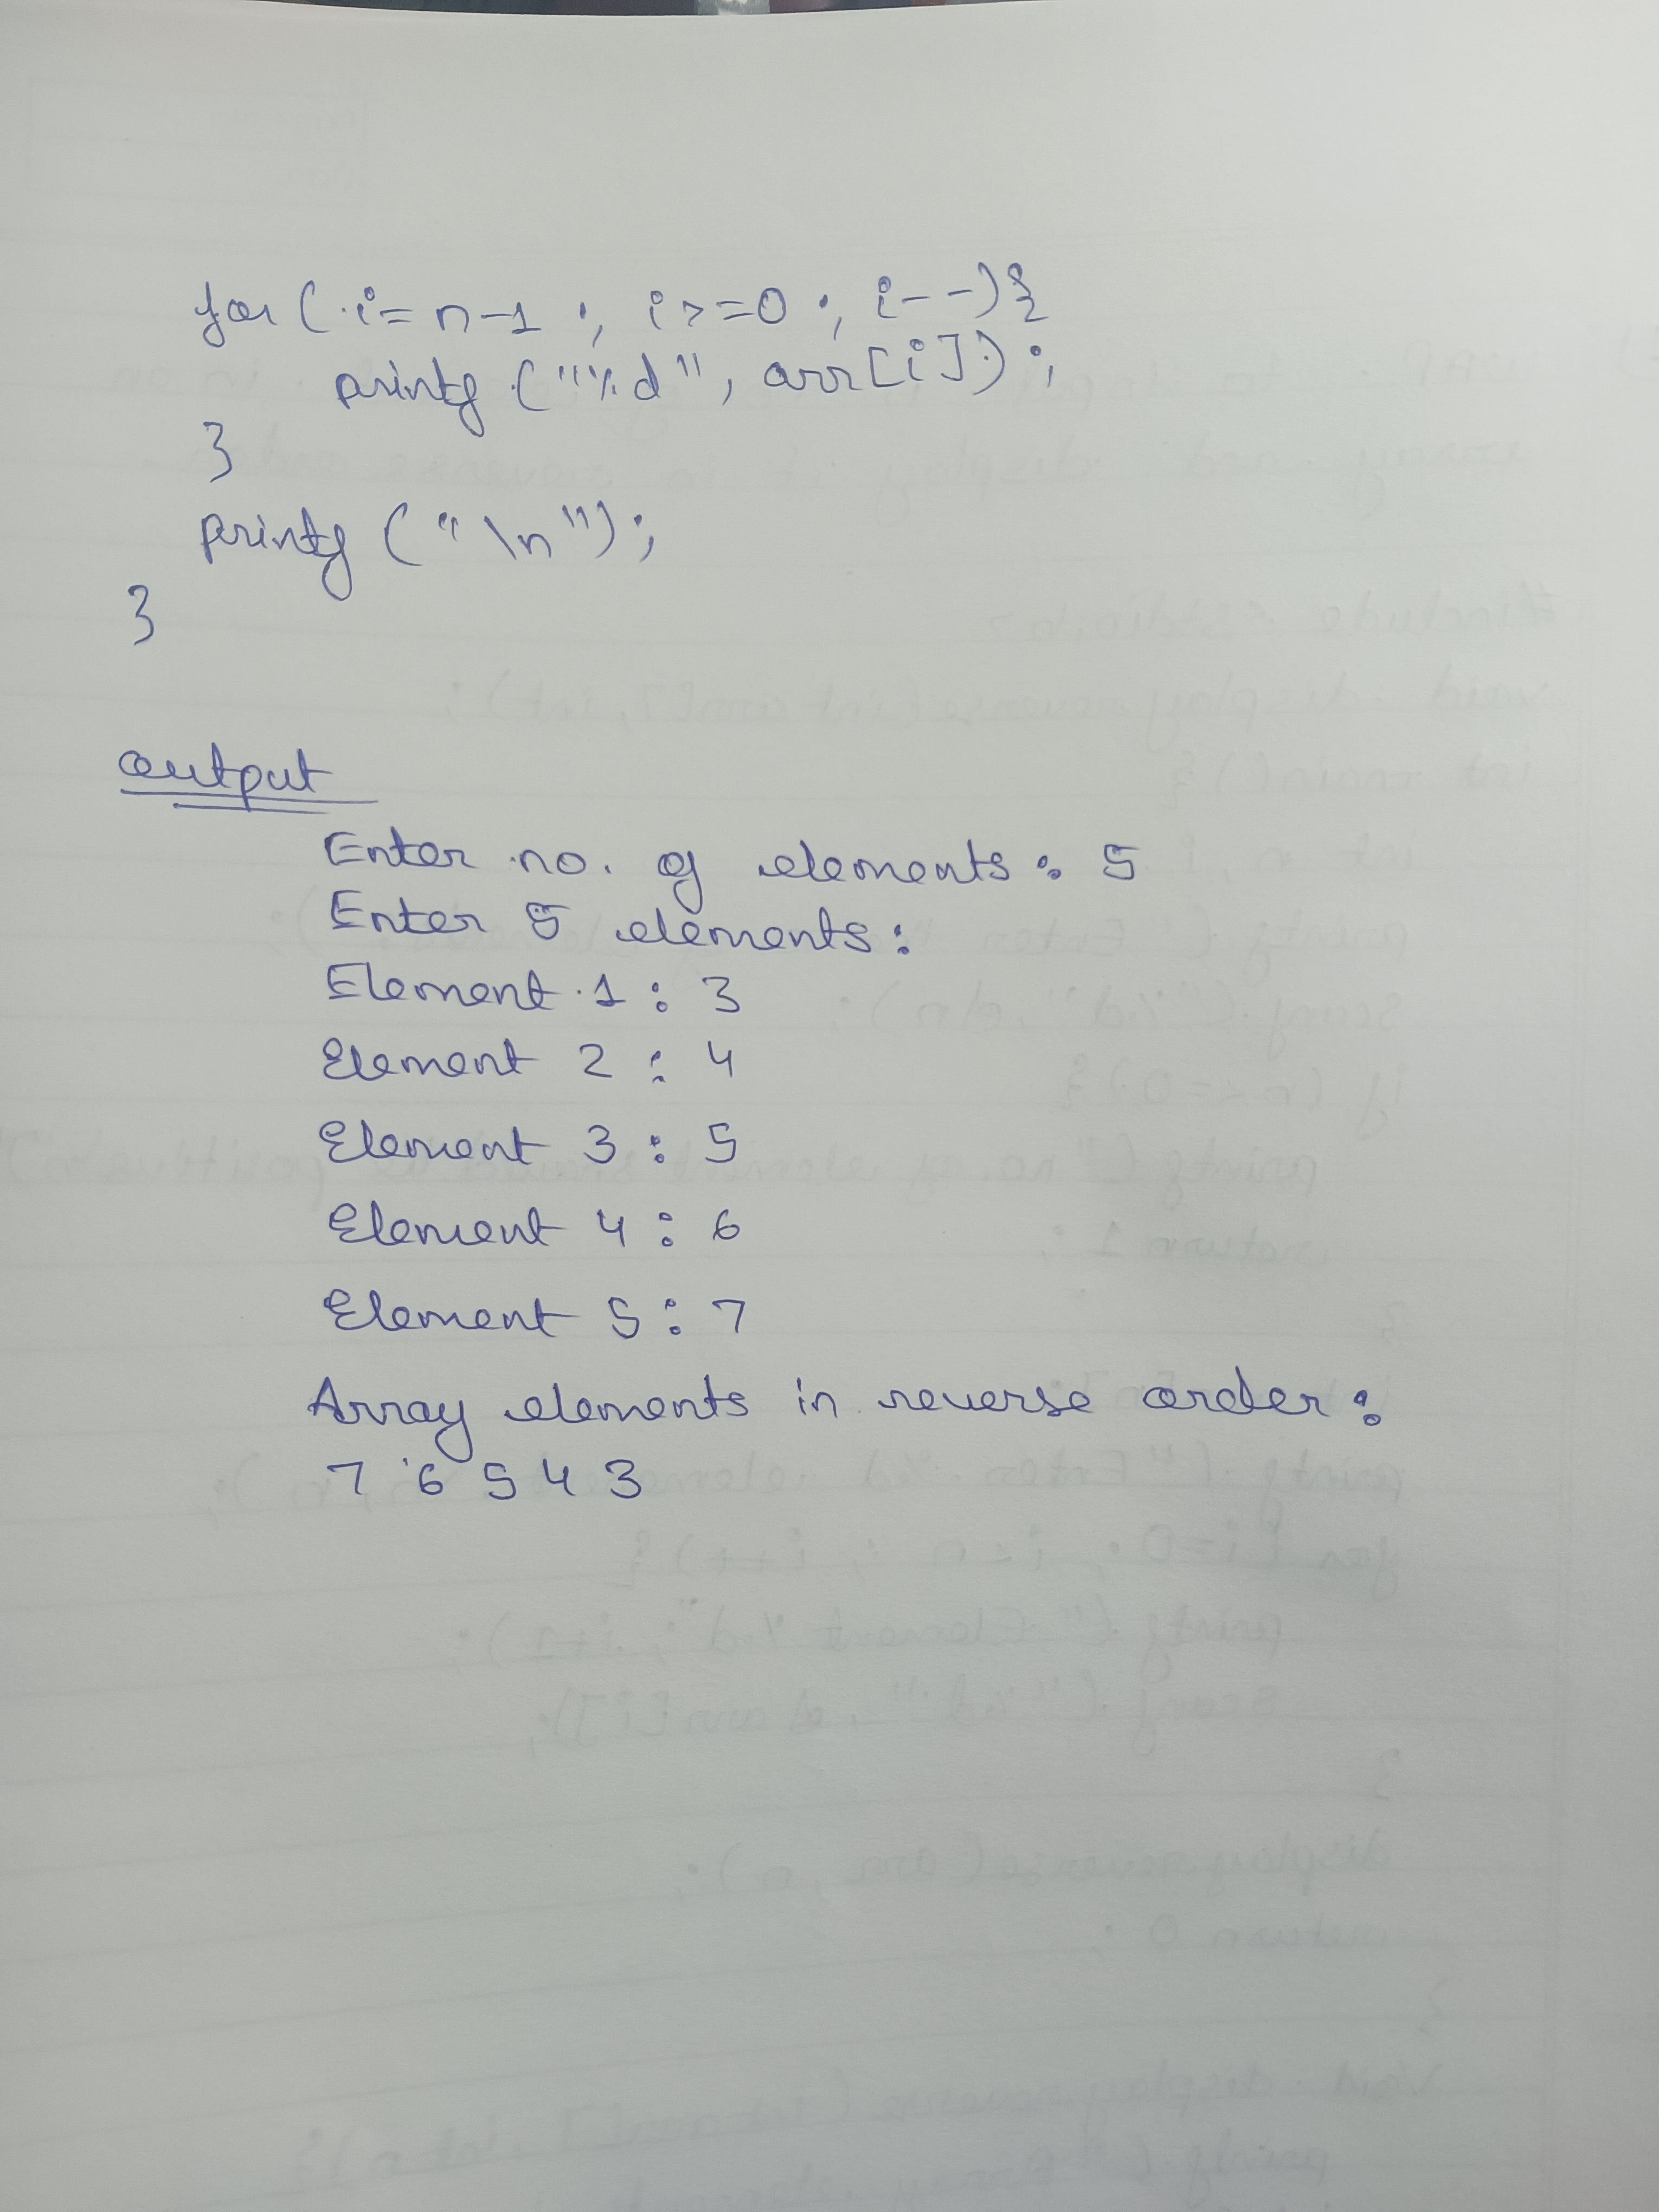 for ( i= n-1 ; i >=0 ; i--){
printf ("%d", arr[i]);
}
printf ("\n");
}
output
Enter no. of elements : 5
Enter 5 elements :
Element 1 : 3
Element 2 : 4
Element 3 : 5
Element 4 : 6
Element 5 : 7
Array elements in reverse order :
7 6 5 4 3